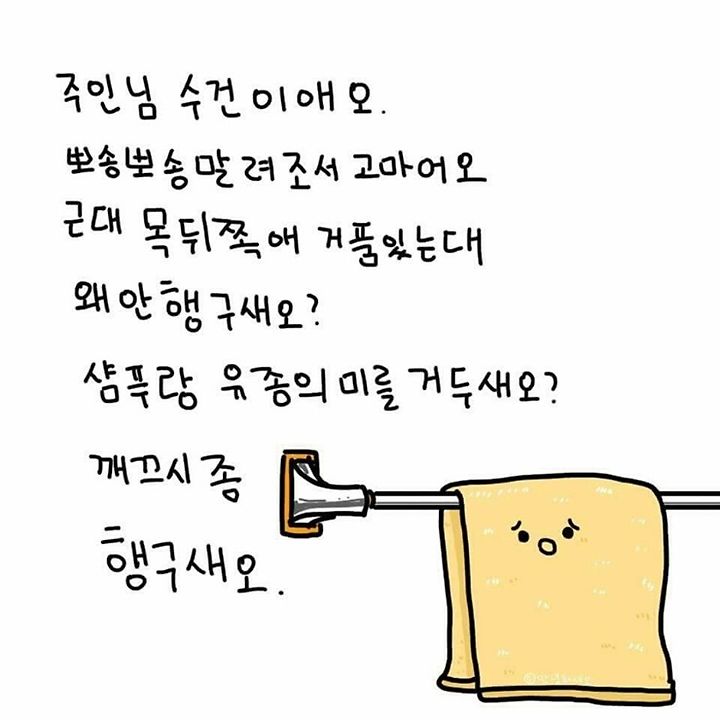 주인님 수건이애오.
뽀송뽀송말려조서 고마어오
근대 목뒤쪽애 거품있는대
왜안행구새오?
샴푸랑 유종의미를 거두새오?
깨끄시 좀
행구새오.